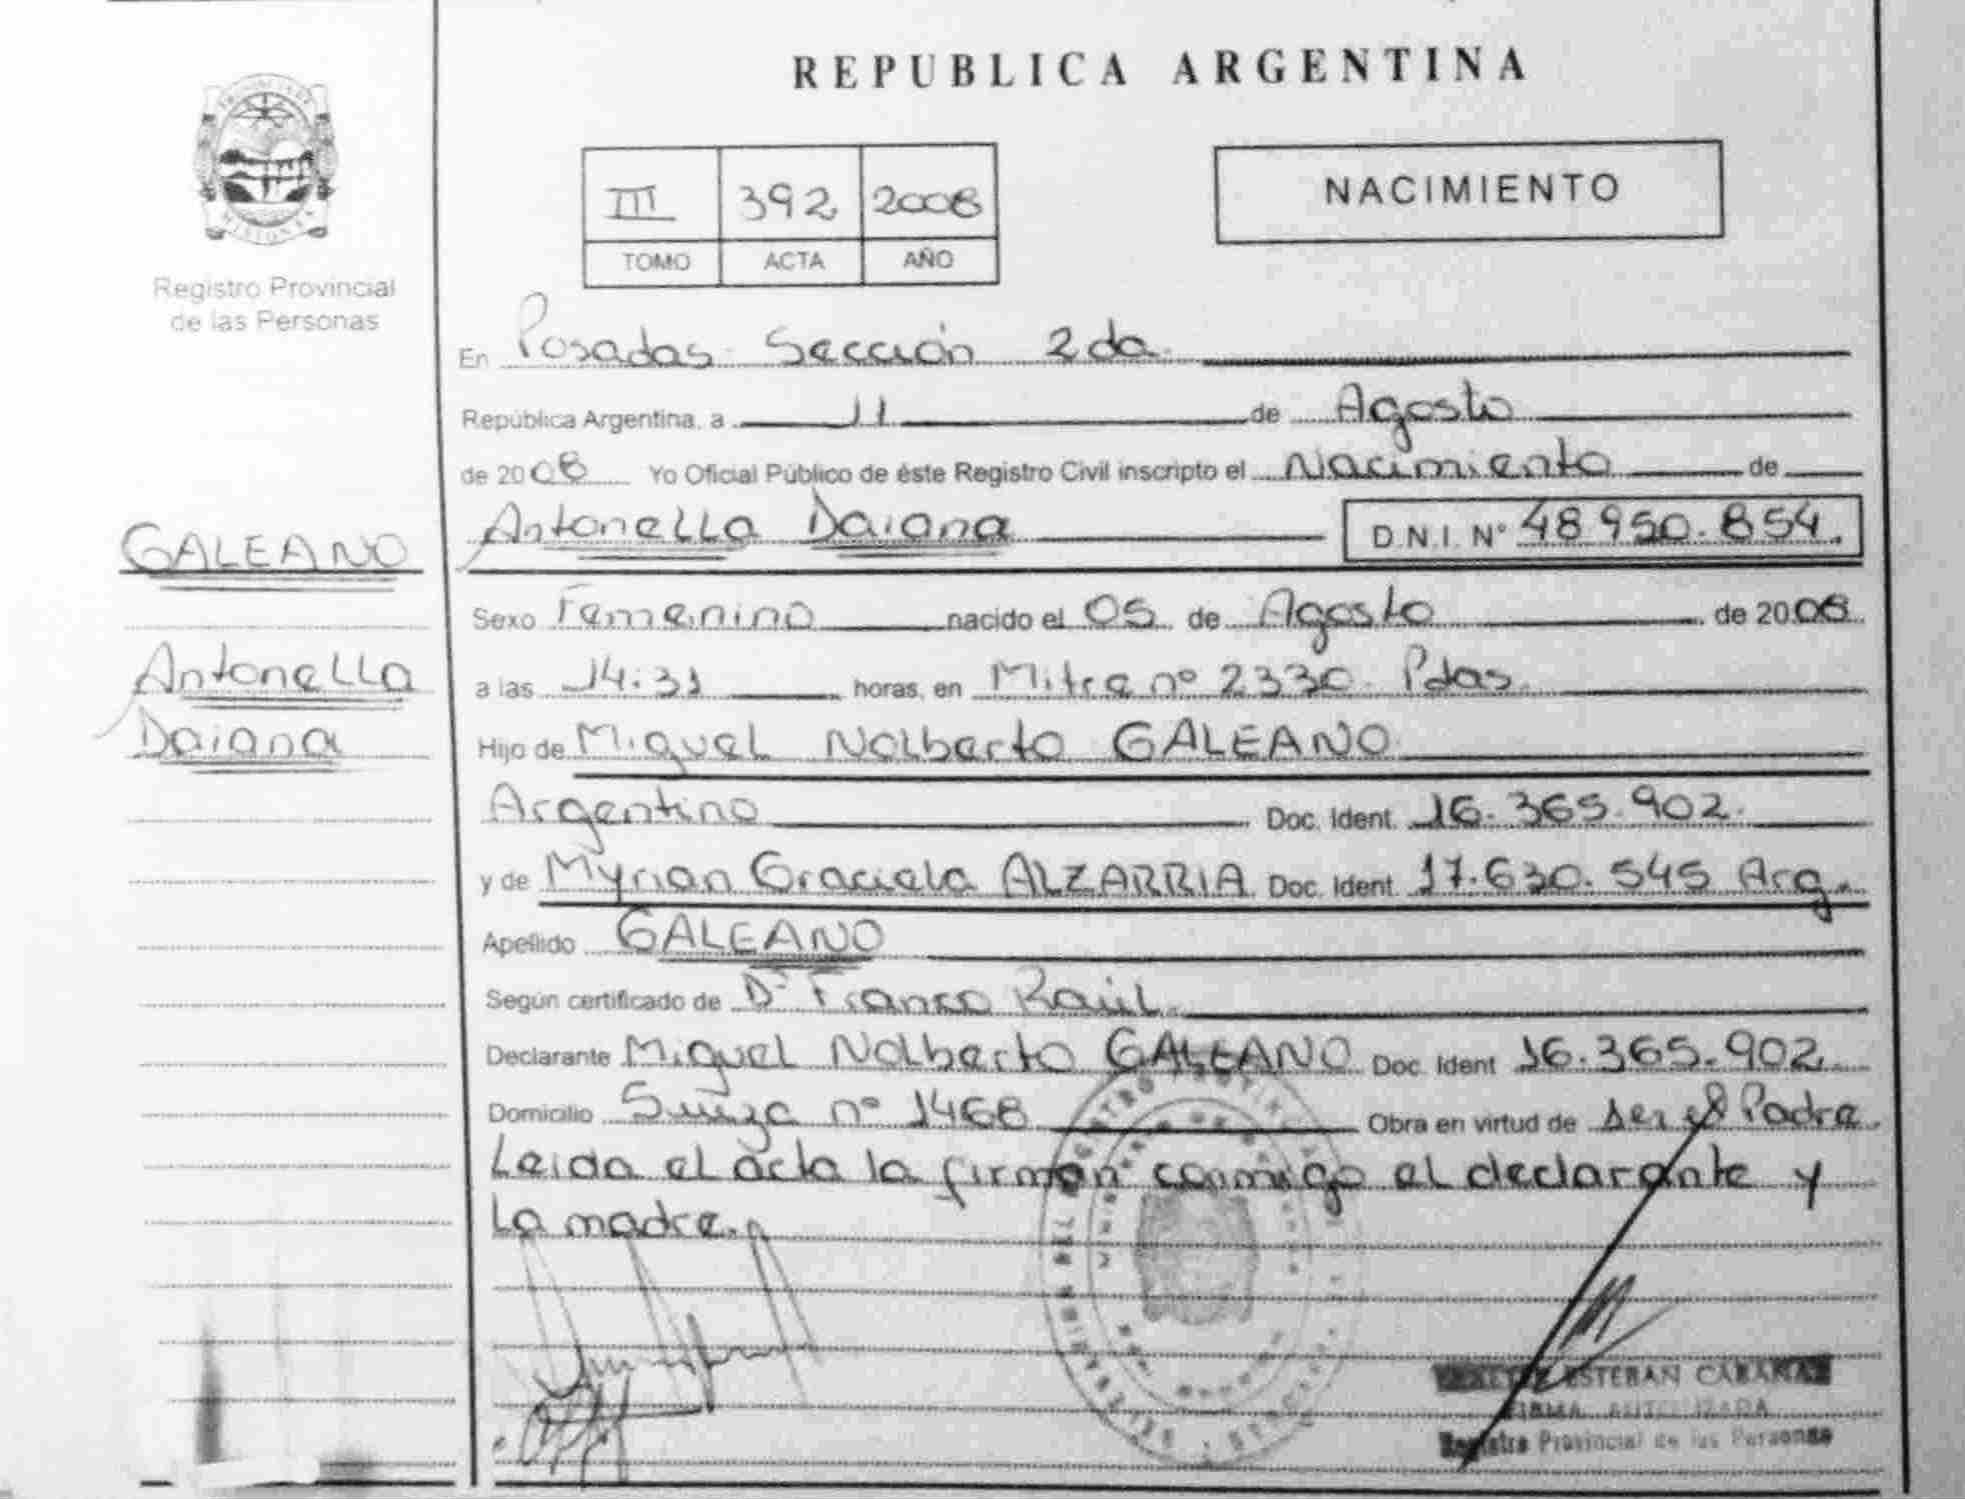 REPUBLICA ARGENTINA
NACIMIENTO
III 392 2008
TOMO ACTA AÑO
Registro Provincial
de las Personas
En Posadas Sección 2da
República Argentina, a 11 de Agosto
de 2008 Yo Oficial Público de éste Registro Civil inscripto el Nacimiento de
GALEANO
Antonella Daiana
Antonella Daiana D.N.I. N° 48.950.854.
Sexo Femenino nacido el 05 de Agosto de 2008
a las 14:31 horas, en Mitre nº 2330 Pdas.
Hijo de Miguel Nolberto GALEANO
Argentino Doc. Ident. 16.365.902.
y de Myrian Graciela ALZARRIA Doc. Ident. 17.630.545 Arg.
Apellido GALEANO
Según certificado de Dr Franco Raúl.
Declarante Miguel Nolberto GALEANO Doc. Ident 16.365.902.
Domicilio Suiza nº 1468 Obra en virtud de ser el Padre.
Leida el acta la firman conmigo el declarante y
la madre.
ESTEBAN
FIRMA AUTORIZADA
Registro Provincial de las Personas